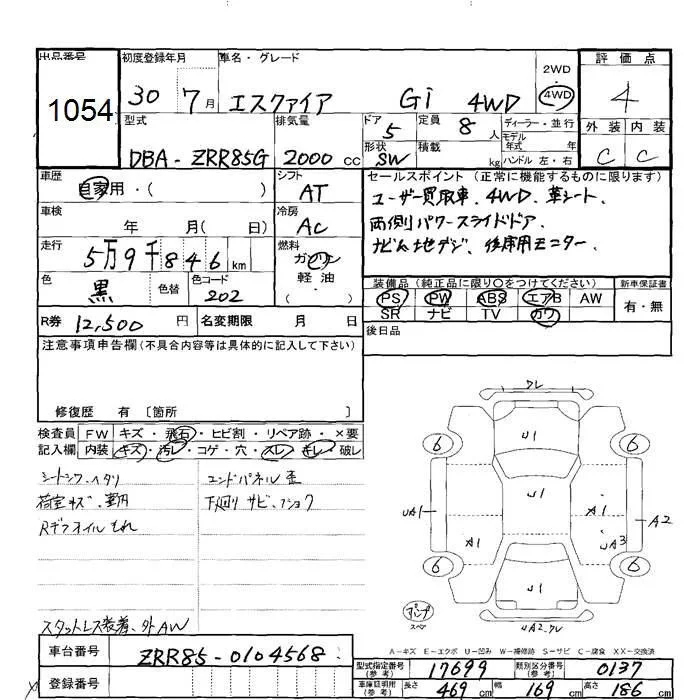 出品番号 初度登録年月 車名・グレード 2WD 評価点
1054 30 7月 エスクァイア Gi 4WD 4WD 4
型式 排気量 ドア 定員 ディーラー・並行 外装 内装
5 8人 モデル年式 年
DBA-ZRR85G 2000cc 形状 SW 積載 kg ハンドル 左・右 C C
車歴 シフト セールスポイント(正常に機能するものに限ります)
自家用・( ) AT ユーザー買取車、4WD、革シート、
車検 冷房 両側パワースライドドア、
年 月( 日) AC ナビ&地デジ、後席用モニター、
走行 燃料
5万9千846km ガソリン
色 色替 色コード 軽油 装備品(純正品に限り○をつけてください) 新車保証書
黒 202 ・ PS PW ABS エアB AW 有・無
R券 12,500円 名変期限 月 日 SR ナビ TV カワ
注意事項申告欄(不具合内容等は具体的に記入して下さい) 後日品
修復歴 有〔箇所 〕
検査員 FW キズ・飛石・ヒビ割・リペア跡・×要
記入欄 内装 キズ・汚レ・コゲ・穴・スレ・キレ・破レ
シートシワ・ヘタリ エンドパネル歪
荷室キズ、 下廻りサビ・
Rデフオイルもれ
スタットレス装着、外AW
ワレ
U1
6 6
U1
UA1 A1 A2
A1 UA3
6 6
U1
パンク
スペア
UA2.ワレ
A-キズ E-エクボ U-凹み W-補修跡 S-サビ C-腐食 XX-交換済
車台番号 ZRR85-0104568 型式指定番号(参考) 17699 類別区分番号(参考) 0137
登録番号 車庫証明用(参考) 長さ 469cm 幅 169cm 高さ 186cm